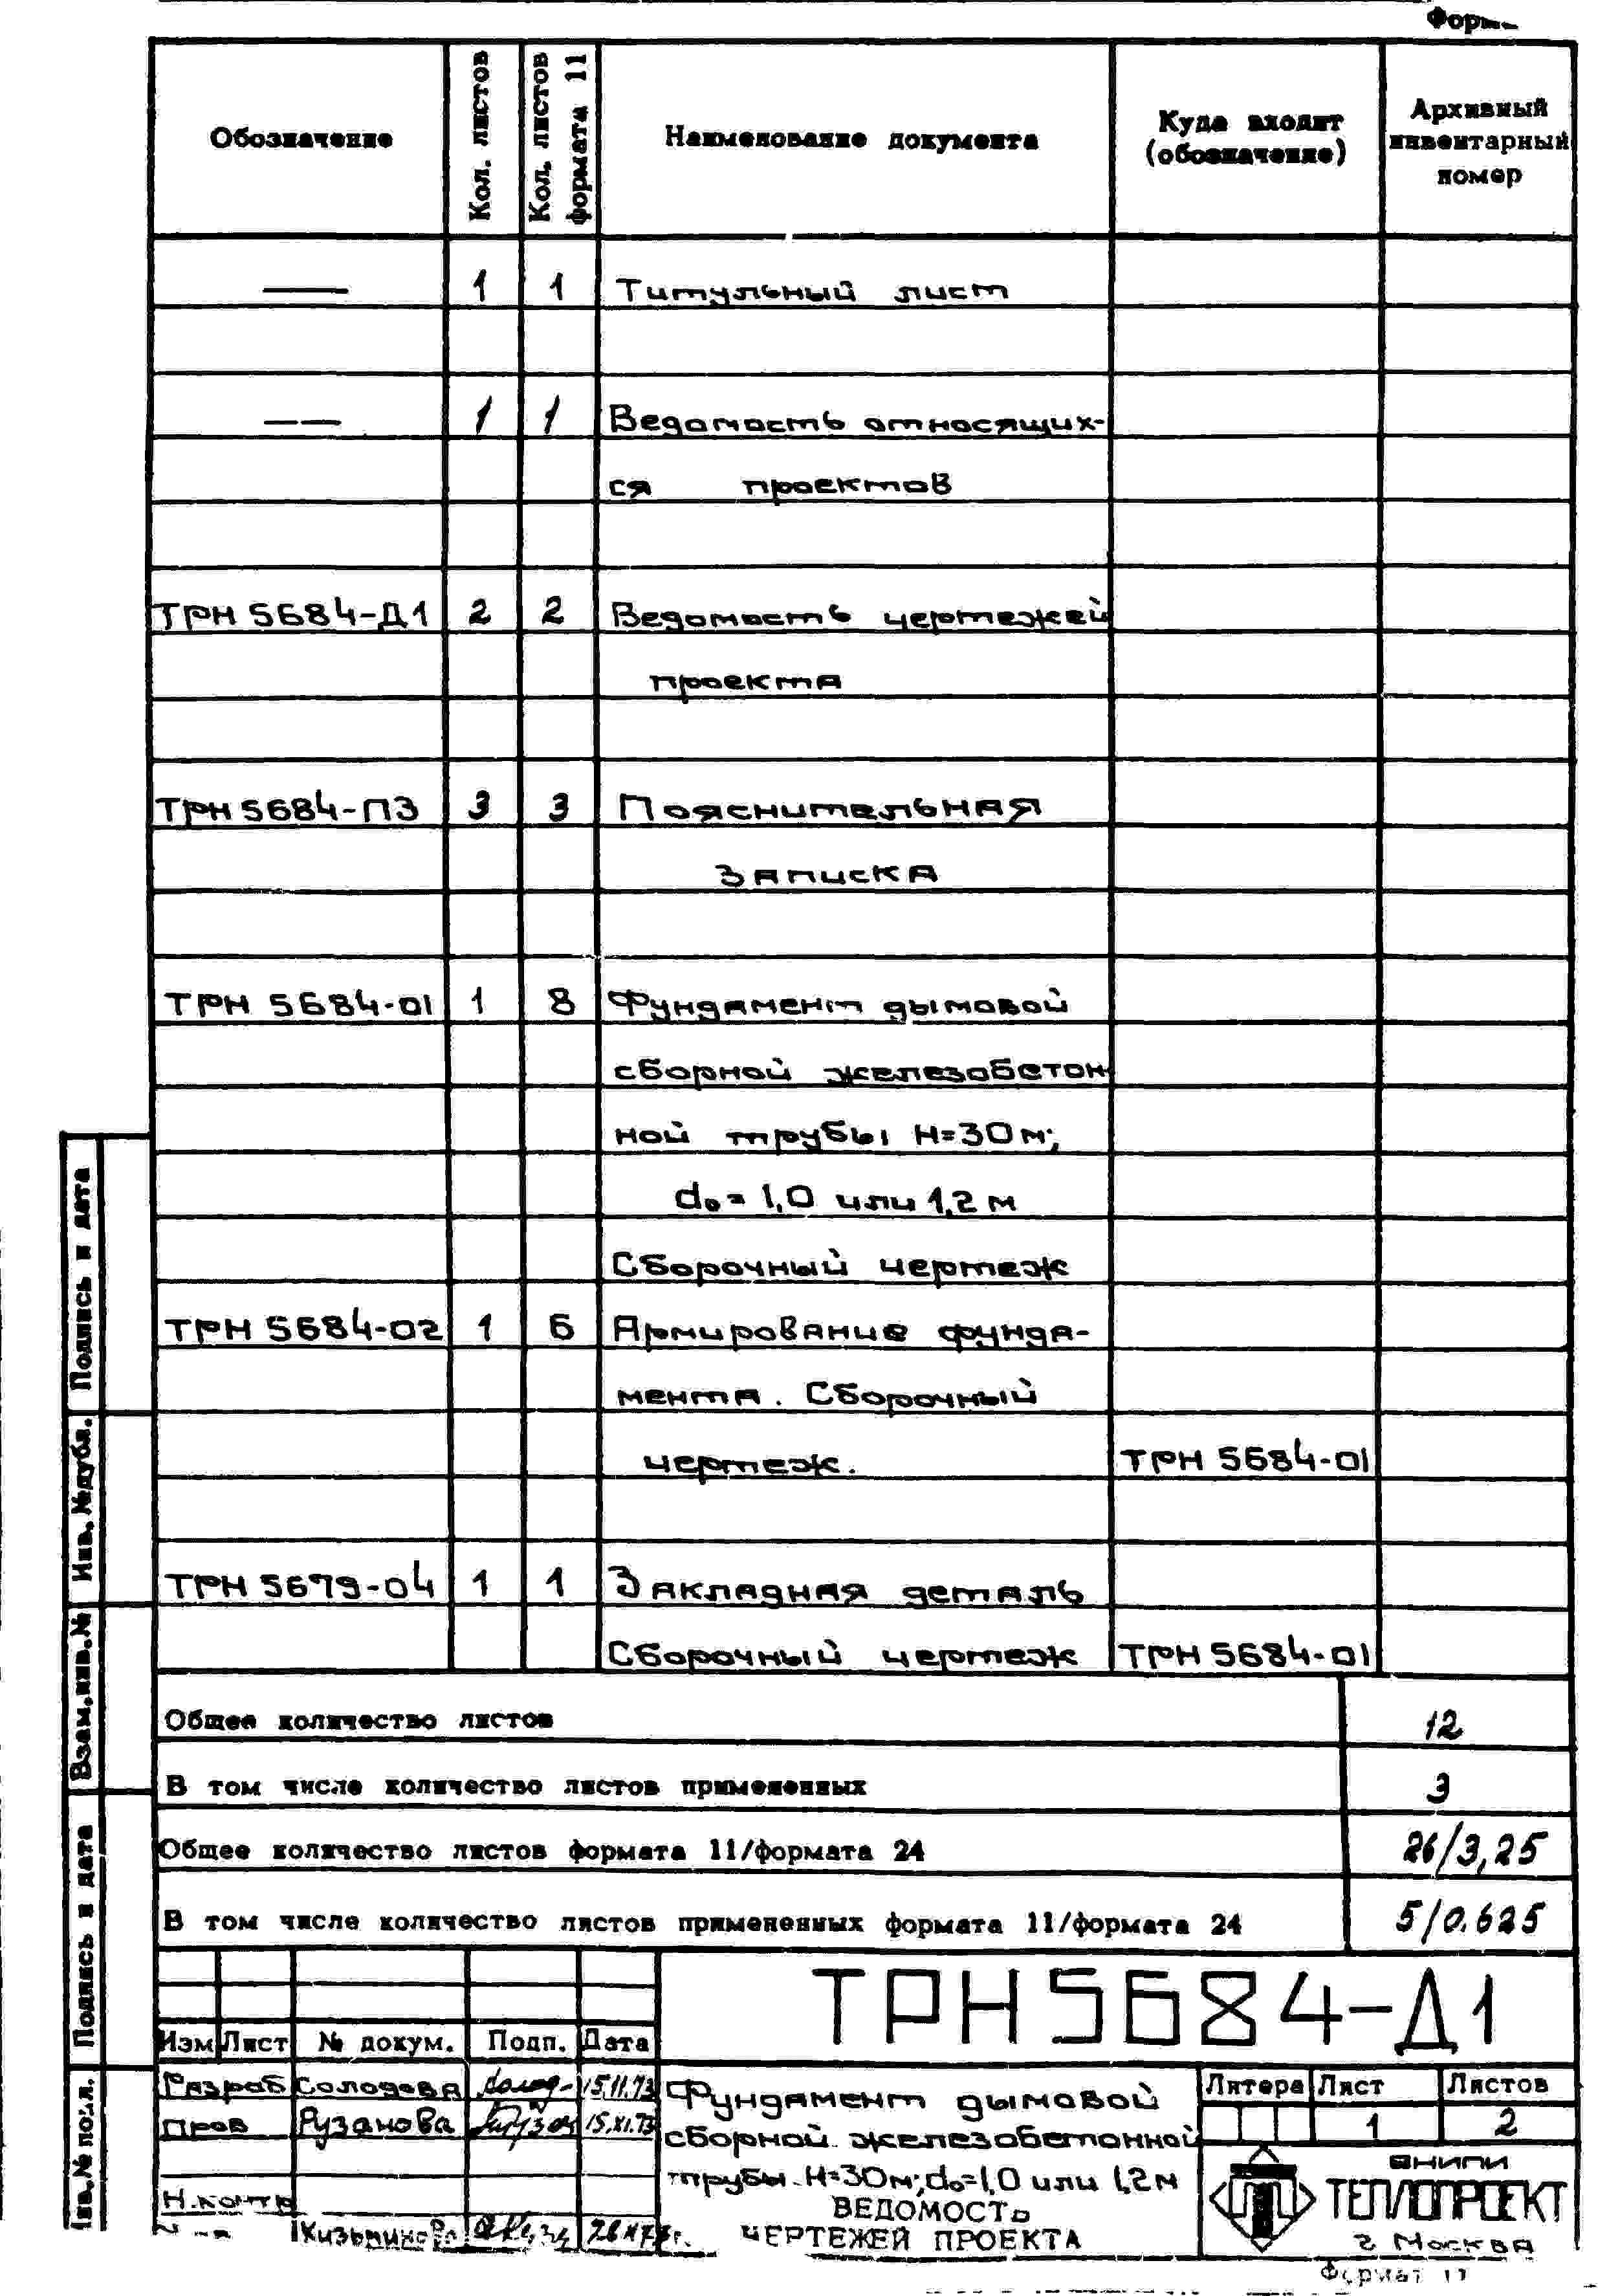 Обозначение
Кол. листов
Кол. листов
формата 11
Наименование документа
Куда входит
(обозначение)
Архивный
инвентарный
номер
— 1 1 Титульный лист
— 1 1 Ведомость относящих-
ся проектов
ТРН 5684-Д1 2 2 Ведомость чертежей
проекта
ТРН 5684-ПЗ 3 3 Пояснительная
записка
ТРН 5684-01 1 8 Фундамент дымовой
сборной железобетон
ной трубы H=30м;
d₀=1,0 или 1,2м
Сборочный чертеж
ТРН 5684-02 1 6 Армирование фунда-
мента. Сборочный
чертеж. ТРН 5684-01
ТРН 5679-04 1 1 Закладная деталь
Сборочный чертеж ТРН 5684-01
Общее количество листов 12
В том числе количество листов примененных 3
Общее количество листов формата 11/формата 24 26/3,25
В том числе количество листов примененных формата 11/формата 24 5/0.625
Подпись и дата
Инв. №дубл.
Взам.инв.№
Подпись и дата
Инв.№ подл.
ТРН 5684-Д1
Изм Лист № докум. Подп. Дата
Разраб Солодова 15.11.73
Пров Рузанова 15.XI.73
Н.контр
Фундамент дымовой
сборной железобетонной
трубы H=30м; d₀=1,0 или 1,2м
ВЕДОМОСТЬ
ЧЕРТЕЖЕЙ ПРОЕКТА
Литера Лист Листов
1 2
ВНИПИ
ТЕПЛОПРОЕКТ
г Москва
Формат 11